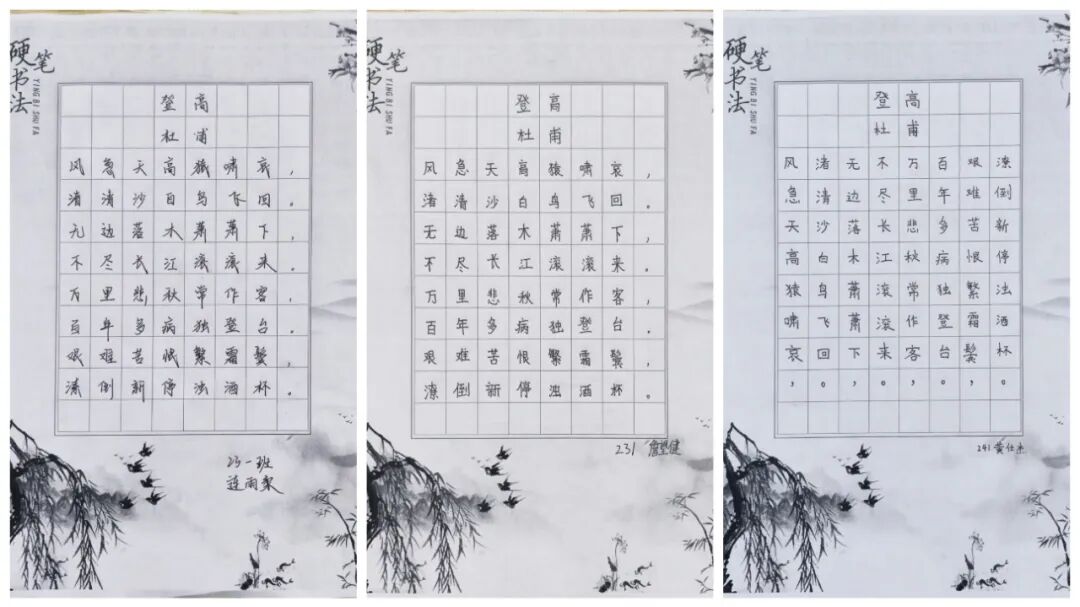 硬笔书法
YING BI SHU FA
登高
杜甫
风急天高猿啸哀,
渚清沙白鸟飞回。
无边落木萧萧下,
不尽长江滚滚来。
万里悲秋常作客,
百年多病独登台。
艰难苦恨繁霜鬓,
潦倒新停浊酒杯。
23一班
硬笔书法
YING BI SHU FA
登高
杜甫
风急天高猿啸哀,
渚清沙白鸟飞回。
无边落木萧萧下,
不尽长江滚滚来。
万里悲秋常作客,
百年多病独登台。
艰难苦恨繁霜鬓,
潦倒新停浊酒杯。
231
硬笔书法
YING BI SHU FA
登高
杜甫
风急天高猿啸哀,
渚清沙白鸟飞回。
无边落木萧萧下,
不尽长江滚滚来。
万里悲秋常作客,
百年多病独登台。
艰难苦恨繁霜鬓,
潦倒新停浊酒杯。
241 黄仕杰